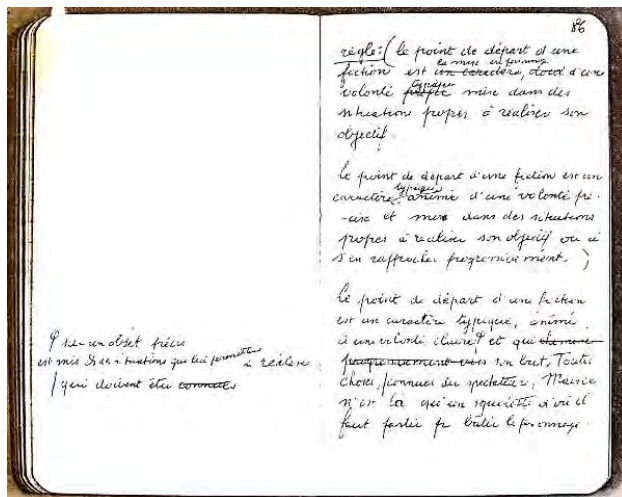 86
règle : ( le point de départ d'une
la mise en
fiction est un caractère, doué d'une
typique
volonté mise dans des
situations propres à réaliser son
objectif.
Le point de départ d'une fiction est un
typique
caractère, animé d'une volonté pré-
-cise et mise dans des situations
propres à réaliser son objectif ou à
s'en rapprocher progressivement. )
Le point de départ d'une fiction
est un caractère typique, animé
d'une volonté claire et qui chemine
progressivement vers son but. Toutes
choses connues du spectateur.
n'est là qu'un squelette d'où il
faut partir pr bâtir le personnage.
sur un objet précis
est mis ds des situations que lui permettent
à réaliser
qui doivent être connues